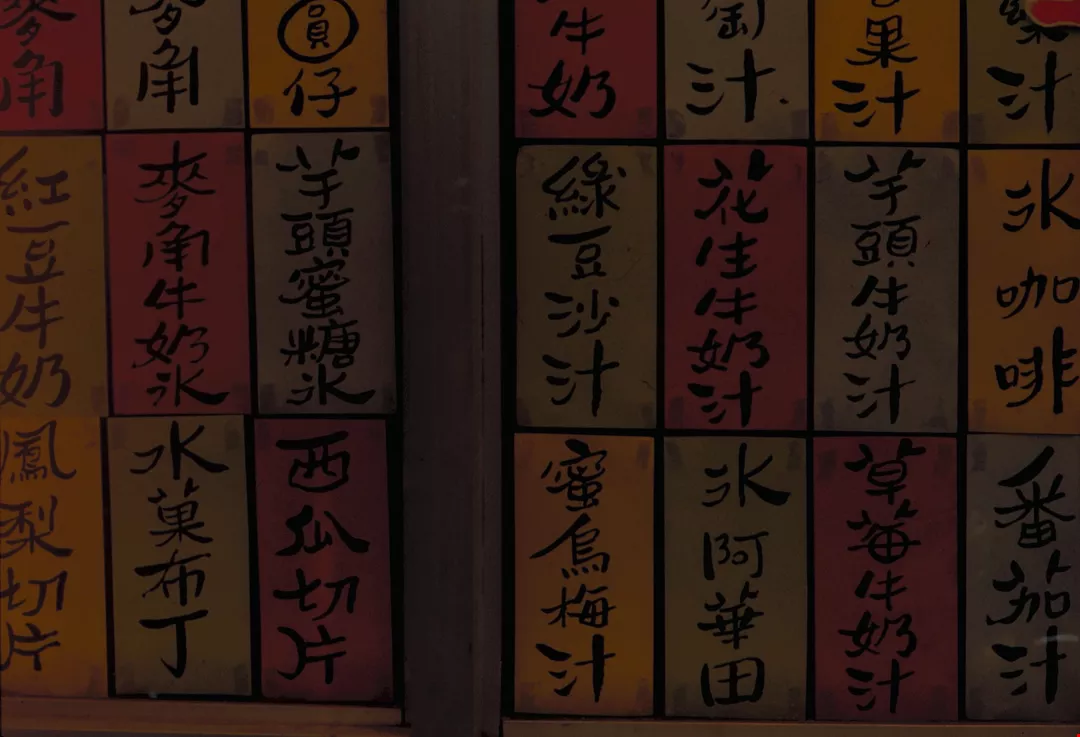 麥角
麥角
圓仔
牛奶
萄汁
果汁
汁
紅豆牛奶
麥角牛奶氷
芋頭蜜糖氷
綠豆沙汁
花生牛奶汁
芋頭牛奶汁
氷咖啡
鳳梨切片
水菓布丁
西瓜切片
蜜烏梅汁
氷阿華田
草莓牛奶汁
番茄汁